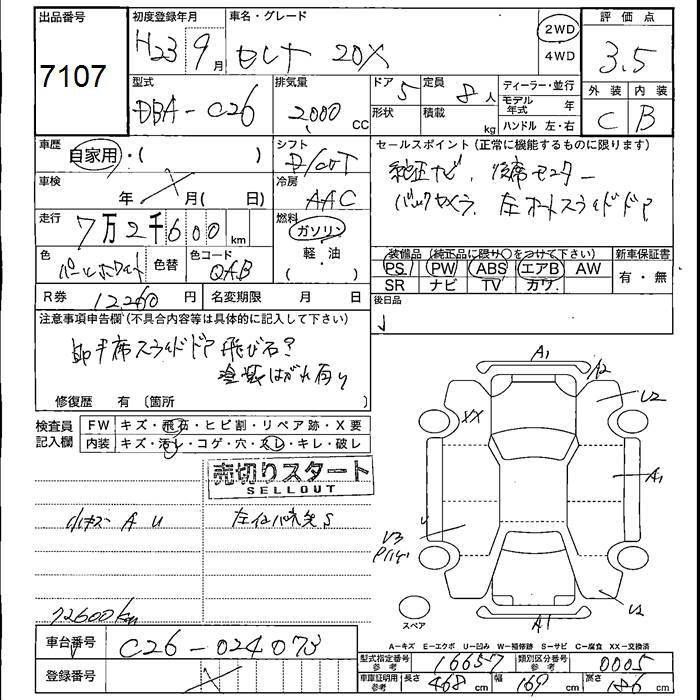 出品番号
7107
初度登録年月
H23 9月
車名・グレード
セレナ 20X
2WD
4WD
評価点
3.5
外装 内装
C B
型式
DBA-C26
排気量
2,000 CC
ドア 5
形状
定員 8人
積載 kg
ディーラー・並行
モデル年式 年
ハンドル 左・右
車歴
自家用・( )
シフト
冷房
AAC
車検
年 月( 日)
セールスポイント (正常に機能するものに限ります)
純正ナビ、後席モニター
バックカメラ、左オートスライドドア
走行
7万2千600km
燃料
ガソリン
軽・油
( )
色
パールホワイト
色替
色コード
QAB
装備品 (純正品に限り○をつけて下さい)
PS PW ABS エアB AW
SR ナビ TV カワ
新車保証書
有・無
R券 12260円
名変期限 月 日
後日品
注意事項申告欄(不具合内容等は具体的に記入して下さい)
助手席スライドドア 飛び石?
塗装はがれ有り
修復歴 有 〔箇所 〕
検査員記入欄
FW キズ・飛石・ヒビ割・リペア跡・X要
内装 キズ・汚レ・コゲ・穴・スレ・キレ・破レ
売切りスタート
SELLOUT
小キズ A U
72600km
車台番号
C26-024073
登録番号
A1
A2
U2
XX
A1
U3
U2
A1
スペア
A-キズ E-エクボ U-凹み W-補修跡 S-サビ C-腐食 XX-交換済
型式指定番号 参考 16657
類別区分番号 参考 0005
車庫証明用 参考 長さ 468cm 幅 169cm 高さ 186cm